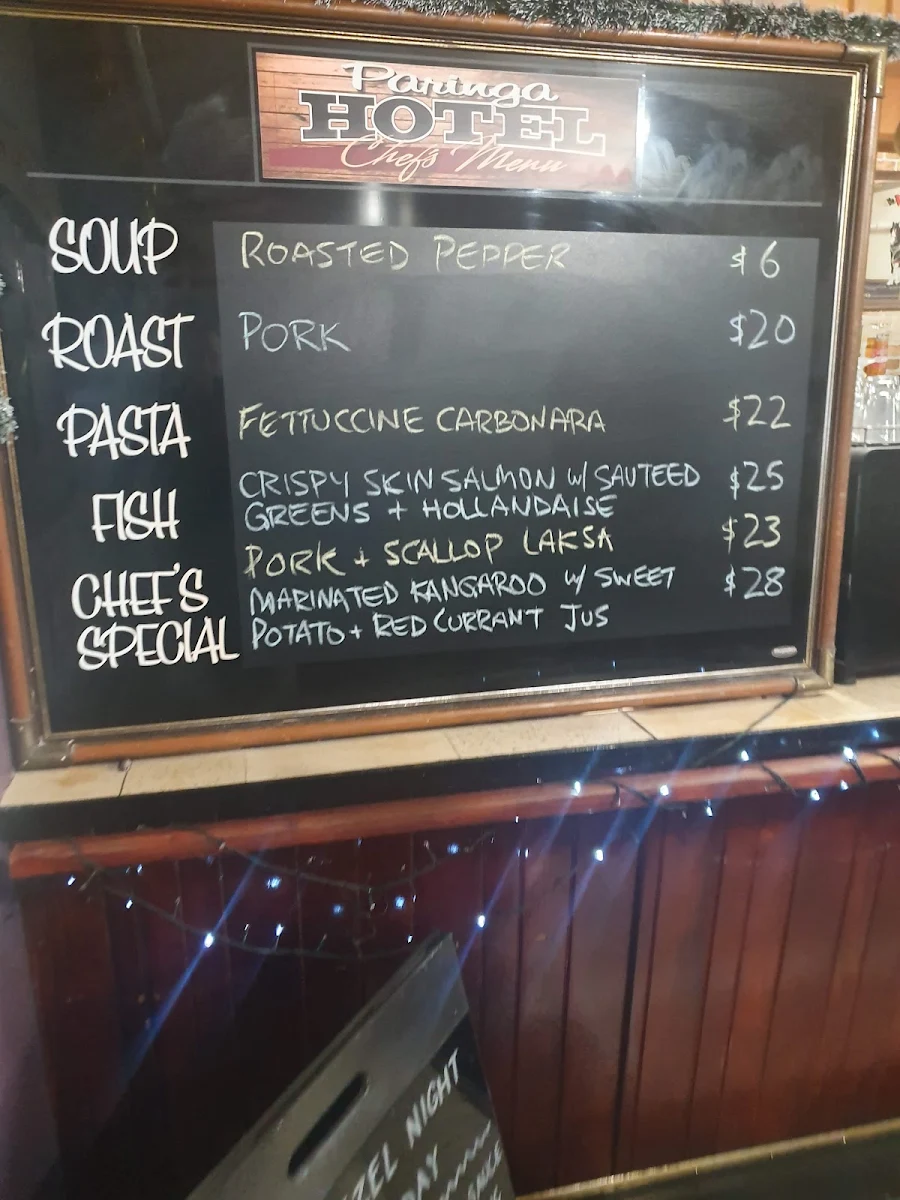 Paringa
HOTEL
Chef's Menu
SOUP ROASTED PEPPER $6
ROAST PORK $20
PASTA FETTUCCINE CARBONARA $22
FISH CRISPY SKIN SALMON W/ SAUTEED $25
GREENS + HOLLANDAISE
PORK + SCALLOP LAKSA $23
CHEF'S MARINATED KANGAROO W/ SWEET $28
SPECIAL POTATO + RED CURRANT JUS
ZEL NIGHT
DAY